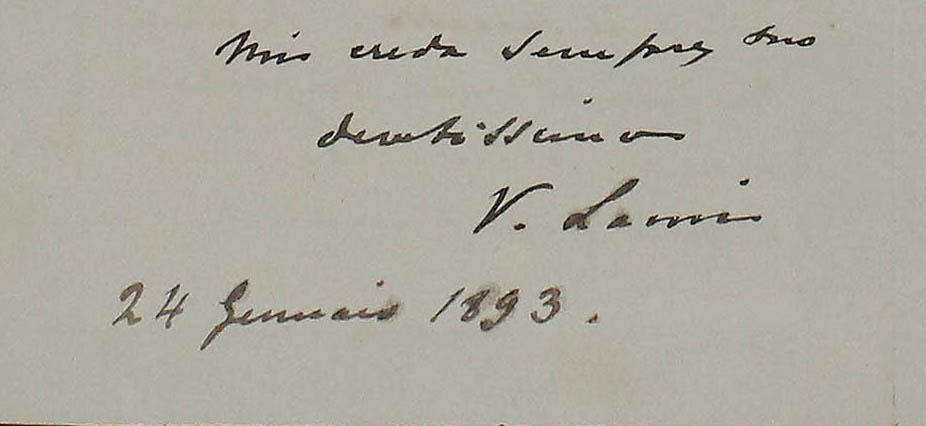 Mi creda sempre suo
devotissimo
V. Lanni
24 Gennaio 1893.